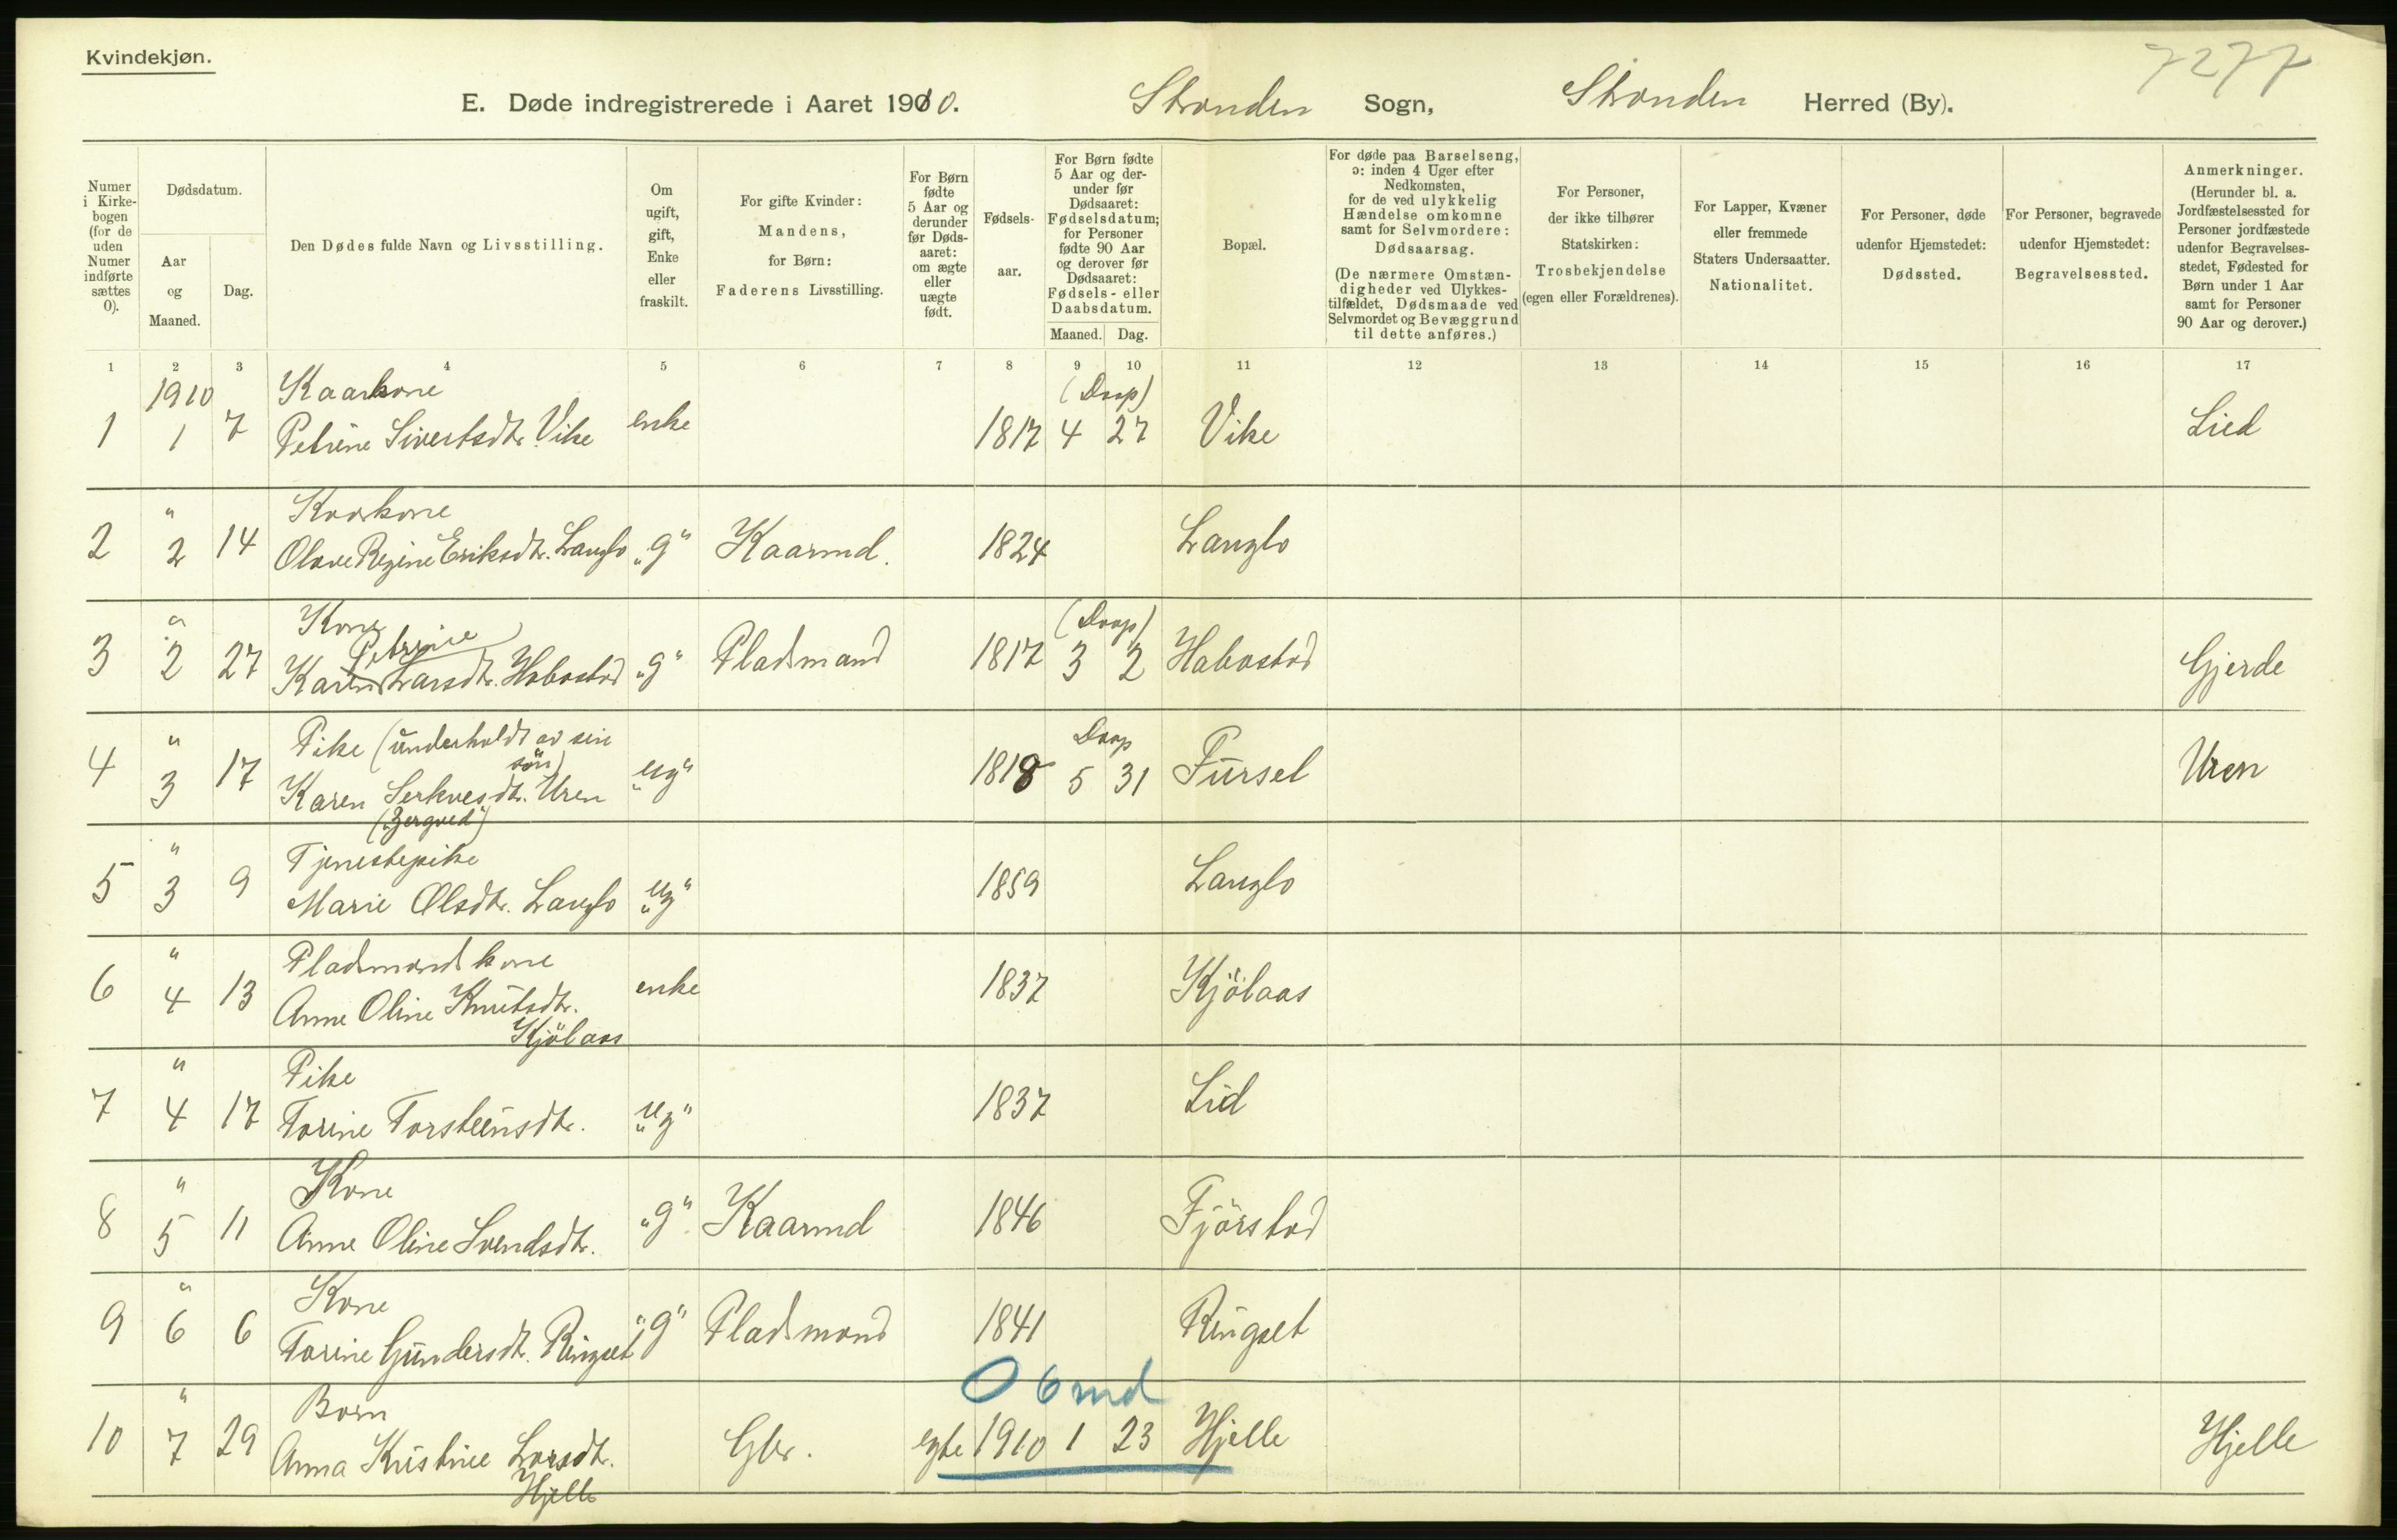 Kvindekjøn.
7277
E. Døde indregistrerede i Aaret 1910. Stranden Sogn, Stranden Herred (By).
Numer i Kirkebogen (for de uden Numer indførte sættes 0).
Dødsdatum.
Aar og Maaned.
Dag.
Den Dødes fulde Navn og Livsstilling.
Om ugift, gift, Enke eller fraskilt.
For gifte Kvinder: Mandens, for Børn: Faderens Livsstilling.
For Børn fødte 5 Aar og derunder før Dødsaaret: om ægte eller uægte født.
Fødselsaar.
For Børn fødte 5 Aar og derunder før Dødsaaret: Fødselsdatum; for Personer fødte 90 Aar og derover før Dødsaaret: Fødsels- eller Daabsdatum.
Maaned. Dag.
Bopæl.
For døde paa Barselseng, ɔ: inden 4 Uger efter Nedkomsten, for de ved ulykkelig Hændelse omkomne samt for Selvmordere: Dødsaarsag.
(De nærmere Omstændigheder ved Ulykkestilfældet, Dødsmaade ved Selvmordet og Bevæggrund til dette anføres.)
For Personer, der ikke tilhører Statskirken: Trosbekjendelse (egen eller Forældrenes).
For Lapper, Kvæner eller fremmede Staters Undersaatter. Nationalitet.
For Personer, døde udenfor Hjemstedet: Dødssted.
For Personer, begravede udenfor Hjemstedet: Begravelsessted.
Anmerkninger.
(Herunder bl. a. Jordfæstelsessted for Personer jordfæstede udenfor Begravelsesstedet, Fødested for Børn under 1 Aar samt for Personer 90 Aar og derover.)
1 2 3 4 5 6 7 8 9 10 11 12 13 14 15 16 17
1910 Kaarkone (Daap)
1 1 7 Petrine Sivertsdtr. Vike enke 1817 4 27 Vike Lied
" Kaarkone
2 2 14 Olave Regine Eriksdtr. Langlo "g" Kaarmd. 1824 Langlo
" Kone (Daap)
Petrine
3 2 27 Karen Larsdtr. Habostad "g" Pladsmand 1817 3 2 Habostad Gjerde
" Pike (underholdt av sin Daap
søn)
4 3 17 Karen Serkvesdtr. Uren "ug" 1818 5 31 Fursel Uren
(Bergved)
" Tjenestepike
5 3 9 Marie Olsdtr. Langlo "ug" 1859 Langlo
" Pladsmandskone
6 4 13 Anne Oline Knutsdtr. enke 1837 Kjölaas
Kjölaas
" Pike
7 4 17 Torine Torsteinsdtr. "ug" 1837 Lid
" Kone
8 5 11 Anne Oline Svendsdtr. "g" Kaarmd 1846 Fjörstad
" Kone
9 6 6 Torine Gundersdtr. Ringset "g" Pladsmand 1841 Ringset
0 6 md
" Barn
10 7 29 Anna Kristine Larsdtr. Gbr. egte 1910 1 23 Hjelle Hjelle
Hjelle